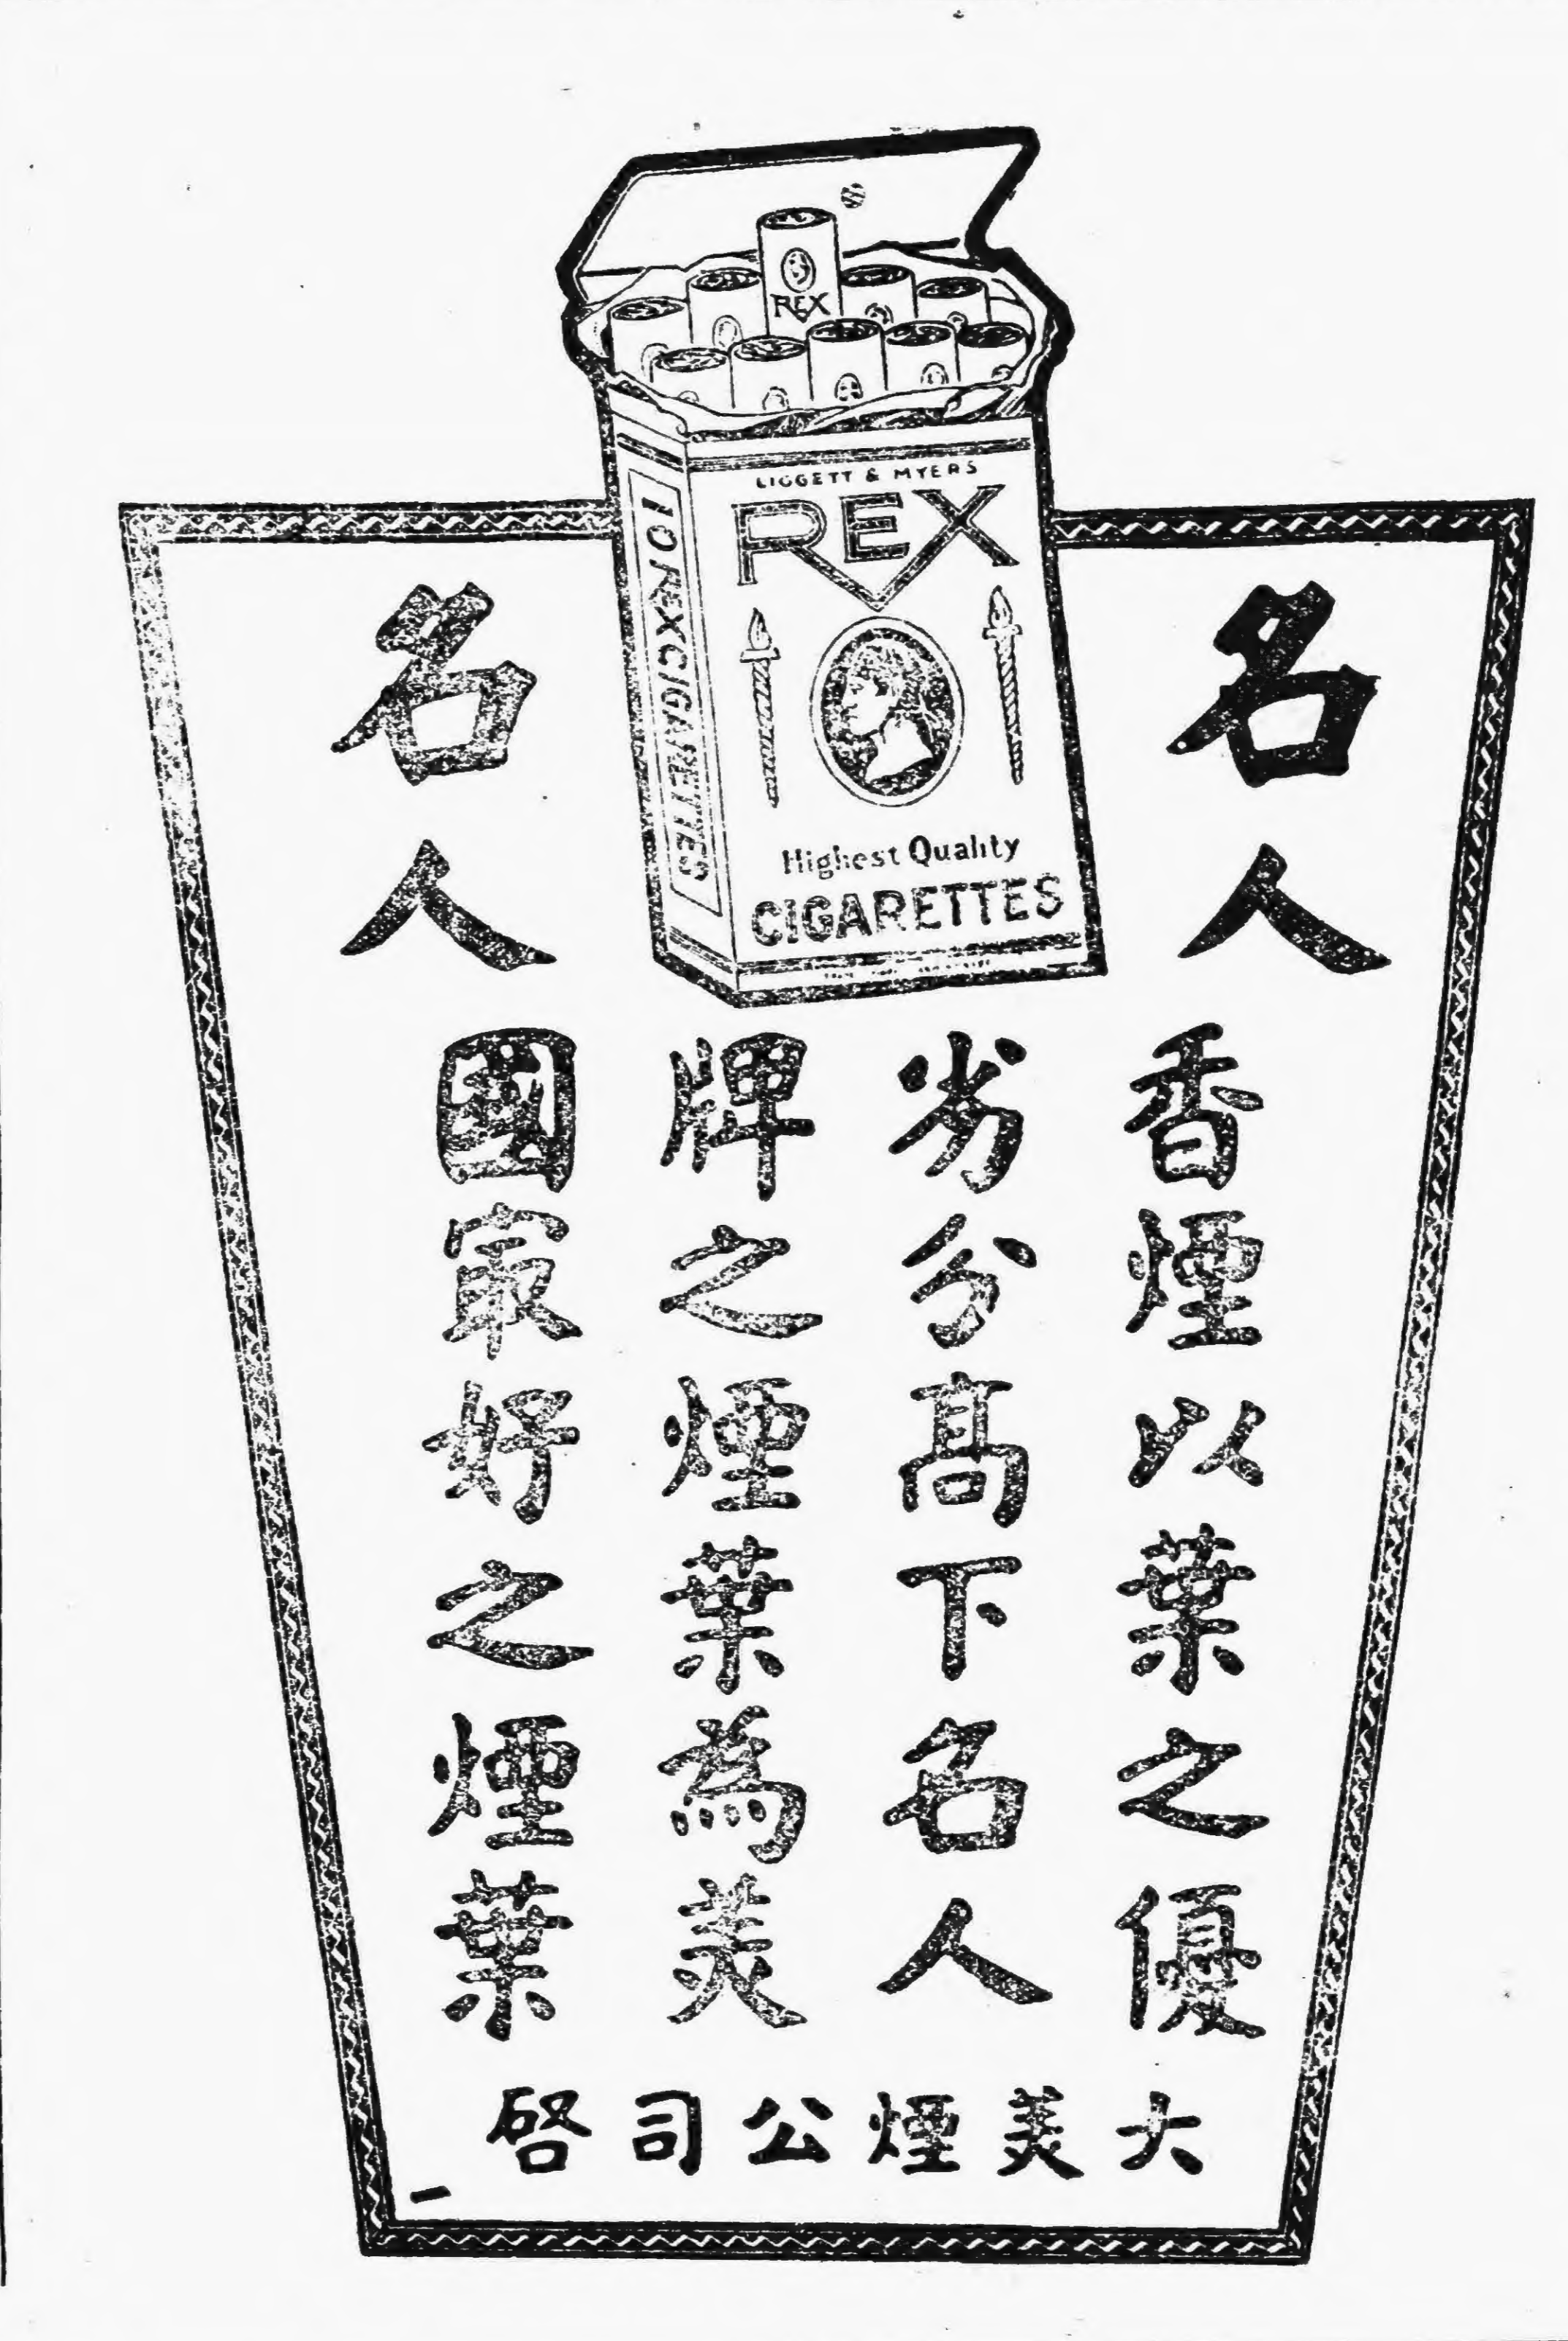 REX
LIGGETT & MYERS
REX
10 REX CIGARETTES
Highest Quality
CIGARETTES
名人
名人
香煙以葉之優
劣分高下名人
牌之煙葉為美
國最好之煙葉
大美煙公司啓
一